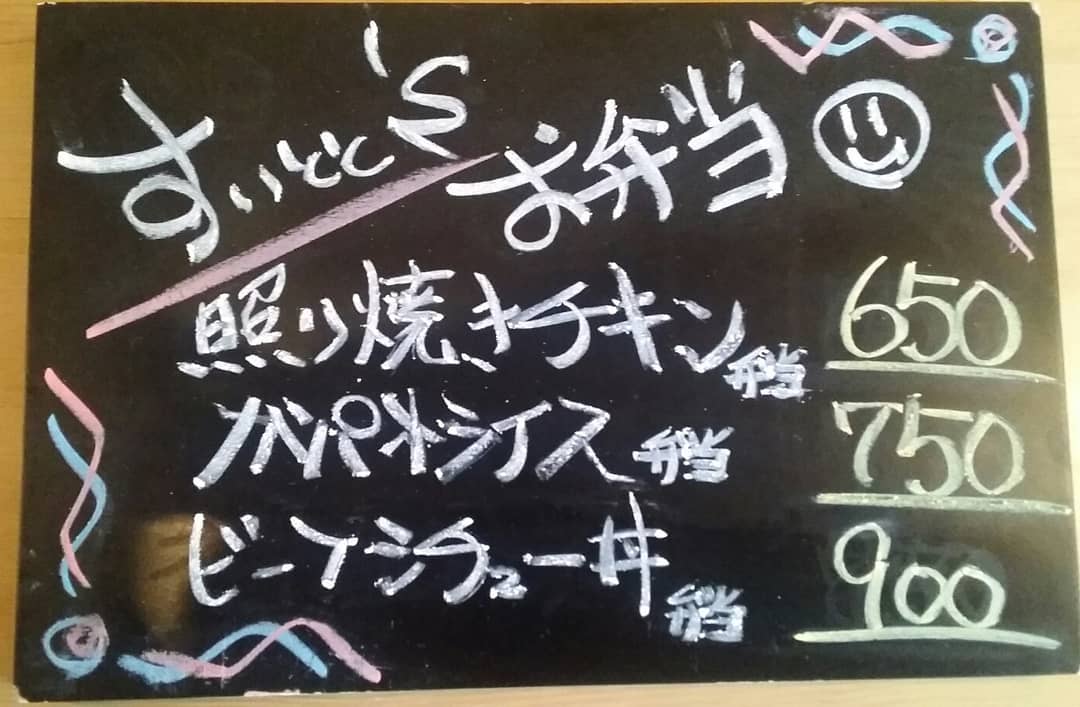 すいとと's
お弁当
照り焼きチキン弁当 650
ガパオライス弁当 750
ビーフシチュー丼弁当 900